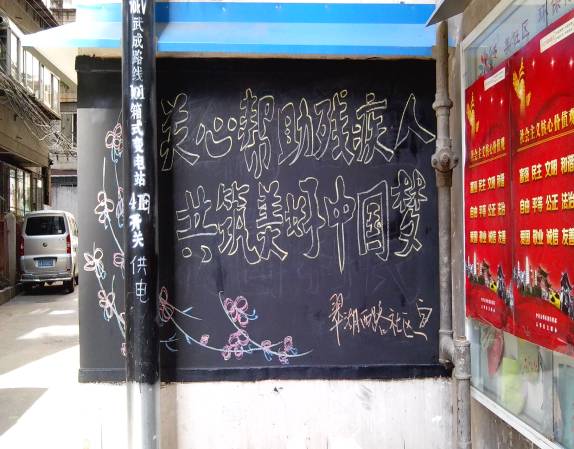 10KV武成路线101箱式变电站4回开关供电
关心帮助残疾人
共筑美好中国梦
翠湖西路社区宣
社会主义核心价值观
富强 民主 文明 和谐
自由 平等 公正 法治
爱国 敬业 诚信 友善
社会主义核心价值观
富强 民主 文明 和谐
自由 平等 公正 法治
爱国 敬业 诚信 友善